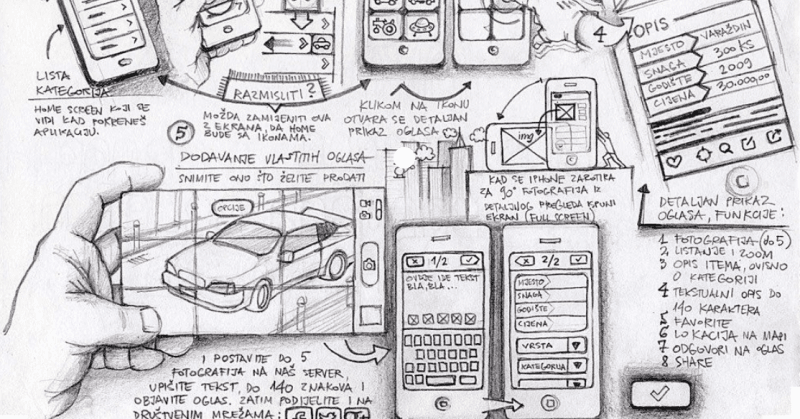 LISTA
KATEGORIJA
HOME SCREEN KOJI SE
VIDI KAD POKRENEŠ
APLIKACIJU.
RAZMISLITI?
MOŽDA ZAMIJENITI OVA
2 EKRANA, DA HOME
BUDE SA IKONAMA.
KLIKOM NA IKONU
OTVARA SE DETALJAN
PRIKAZ OGLASA
4
OPIS
MJESTO VARAŽDIN
SNAGA 300 KS
GODIŠTE 2009
CIJENA 30.000,00
5
DODAVANJE VLASTITIH OGLASA
SNIMITE ONO ŠTO ŽELITE PRODATI
OPCIJE
img
KAD SE IPHONE ZAROTIRA
ZA 90° FOTOGRAFIJA IZ
DETALJNOG PREGLEDA ISPUNI
EKRAN (FULL SCREEN)
DETALJAN PRIKAZ
OGLASA, FUNKCIJE:
1 FOTOGRAFIJA (do 5)
2 LISTANJE I ZOOM
3 OPIS ITEMA, OVISNO
O KATEGORIJI
4 TEKSTUALNI OPIS DO
140 KARAKTERA
5 FAVORITE
6 LOKACIJA NA MAPI
7 ODGOVORI NA OGLAS
8 SHARE
1/2
OVDJE IDE TEKST
BLA, BLA...
2/2
MJESTO
SNAGA
GODIŠTE
CIJENA
VRSTA
KATEGORIJA
I POSTAVITE DO 5
FOTOGRAFIJA NA NAŠ SERVER,
UPIŠITE TEKST, DO 140 ZNAKOVA I
OBJAVITE OGLAS. ZATIM PODIJELITE I NA
DRUŠTVENIM MREŽAMA: